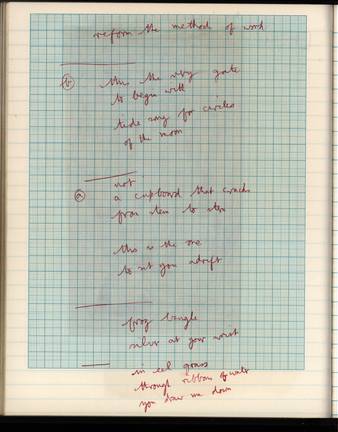 reform the method of word
(b) this the very gate
to begin with
tide song for circles
of the moon
not
(a) a cupboard that cracks
from ten to ten
this is the one
to set you adrift
frog bangle
silver at your wrist
in eel grass
through ribbons of water
you draw me down